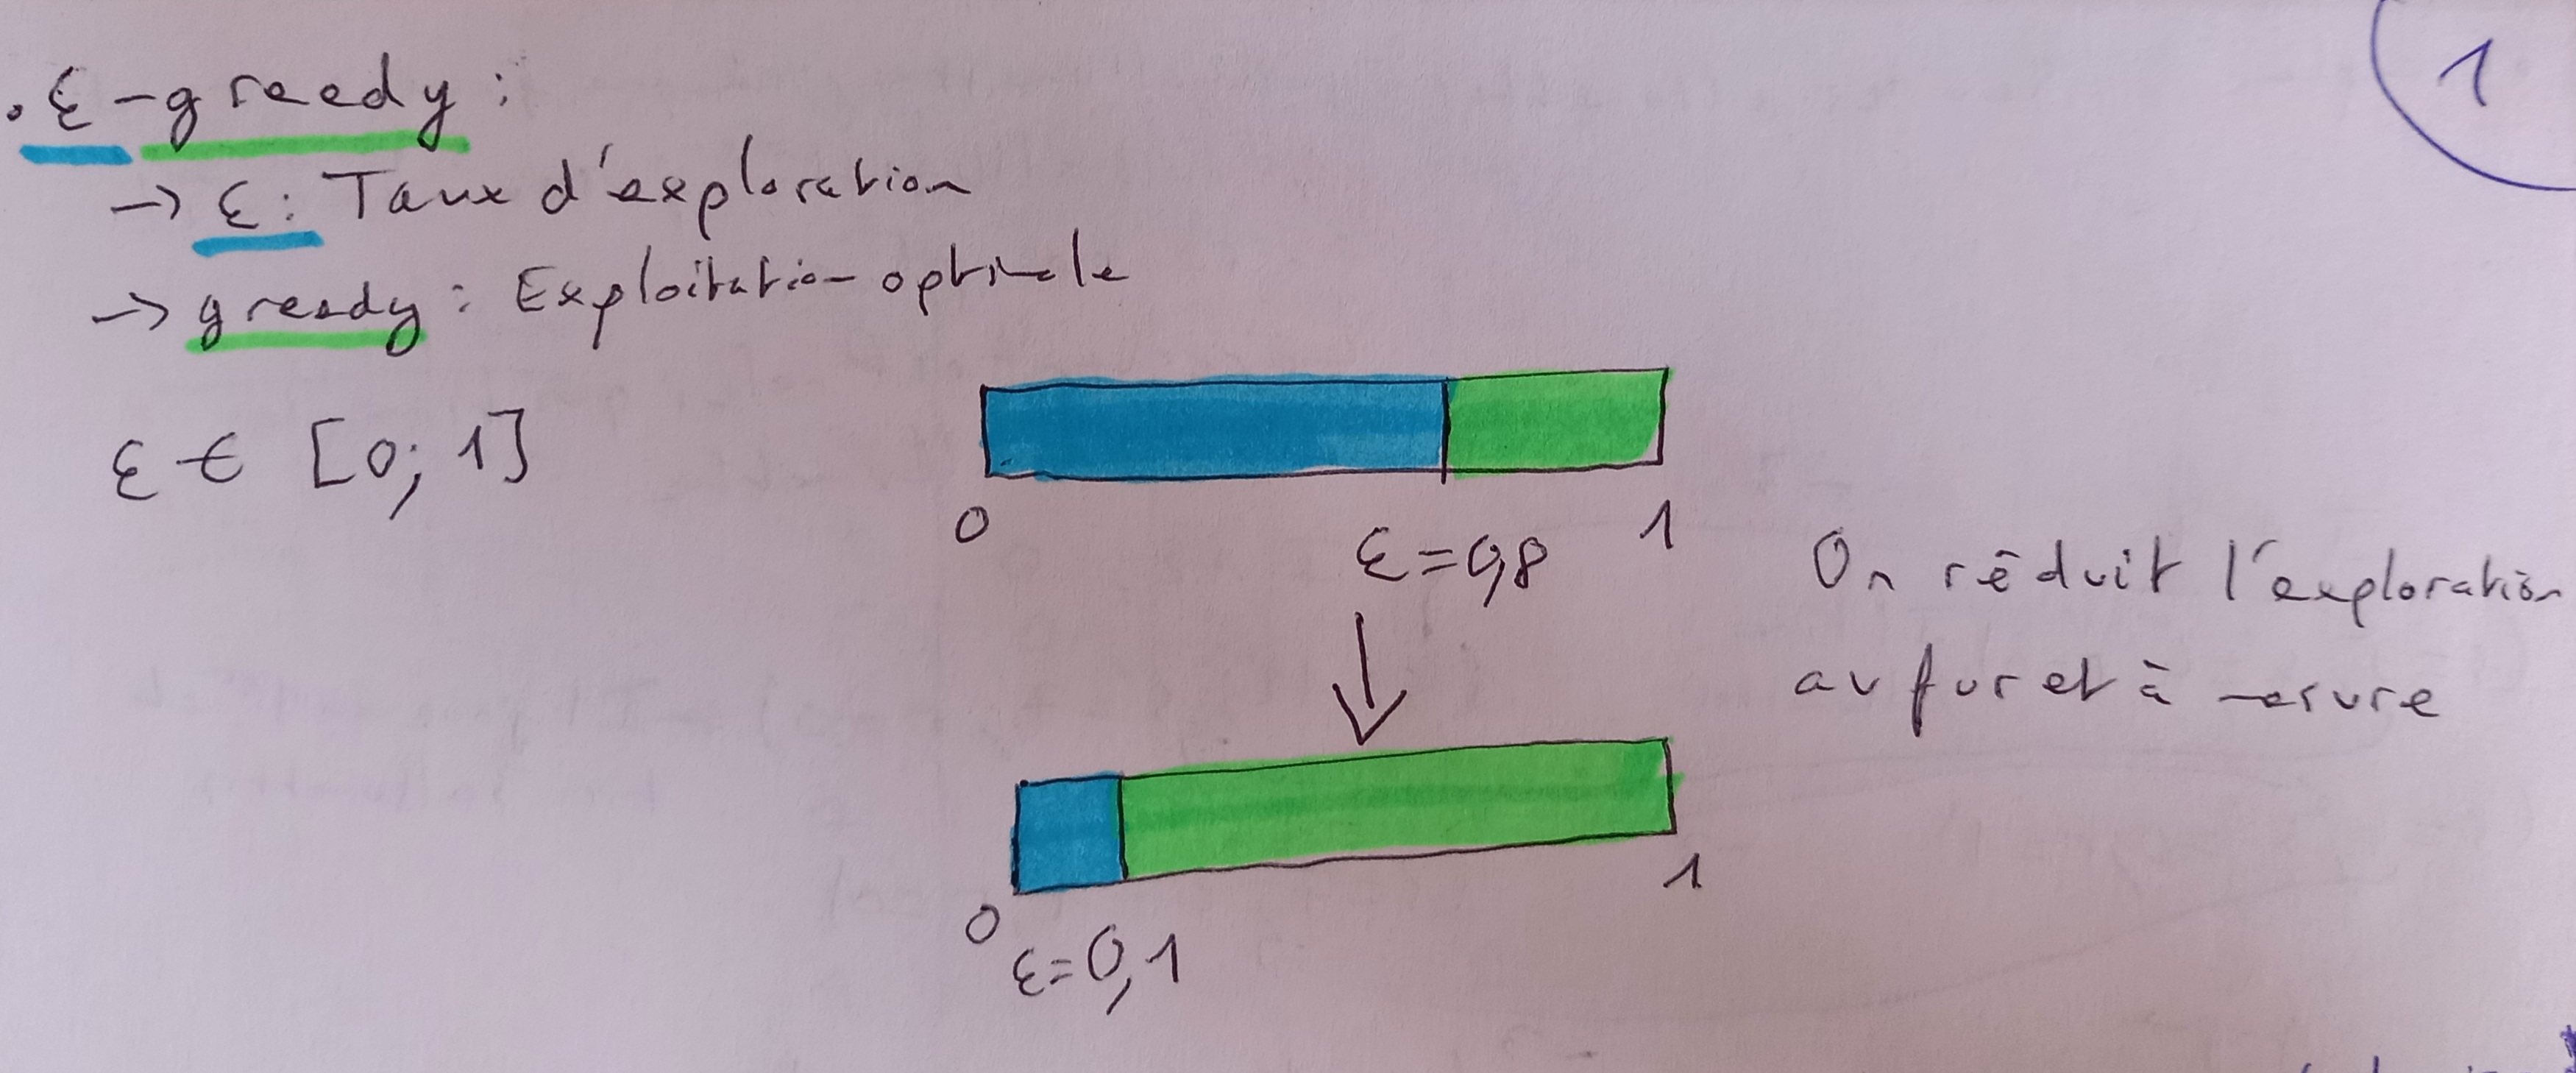 1
. ε-greedy :
→ ε : Taux d'exploration
→ greedy : Exploitation optimale
ε ∈ [0; 1]
0
1
ε=0,8
On réduit l'exploration
au fur et à mesure
0
1
ε=0,1